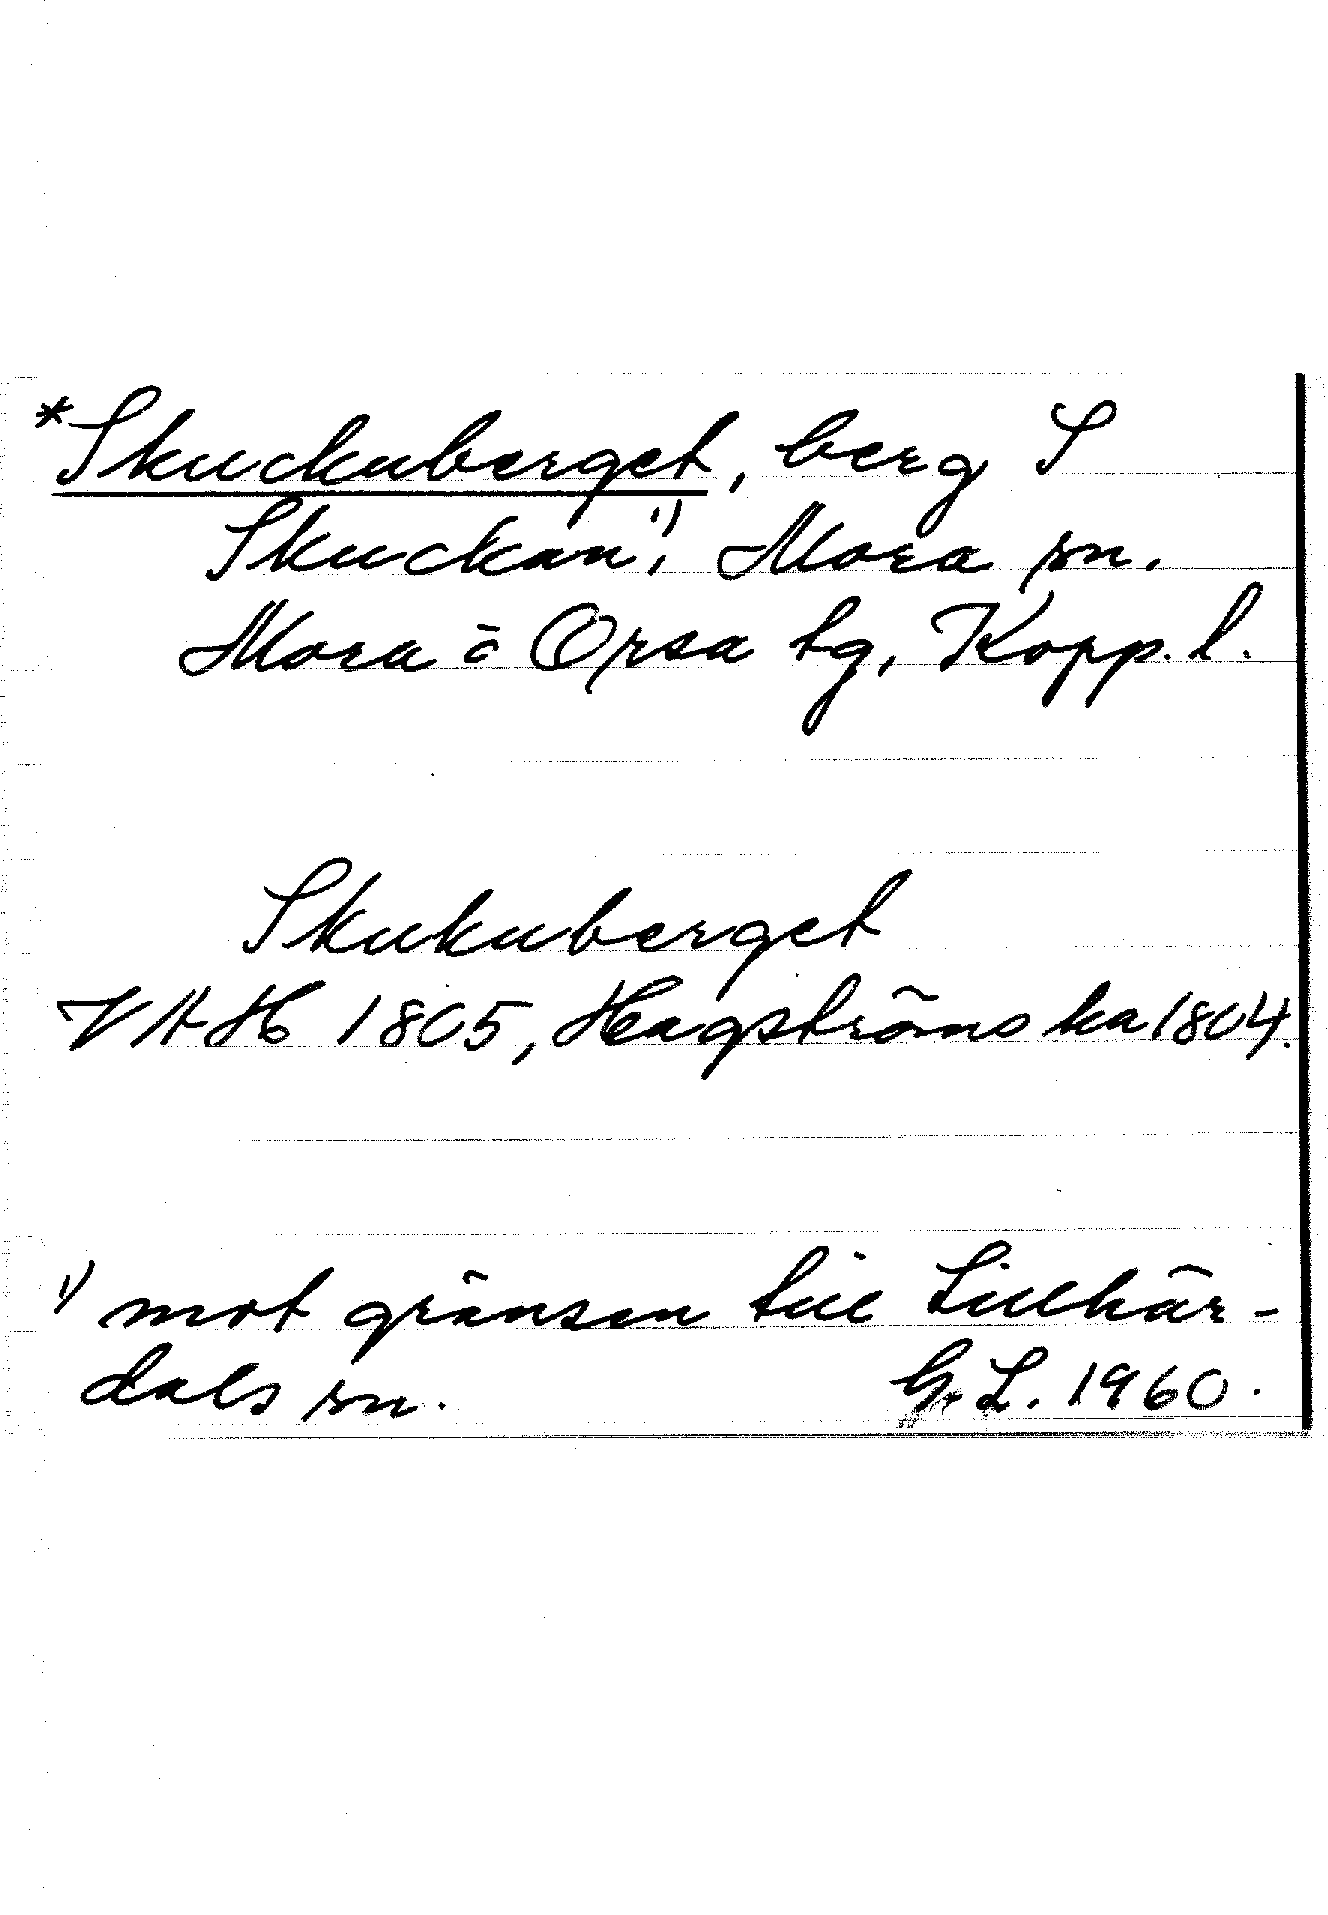 *Skuckuberget, berg S
Skuckan¹⁾, Mora sn.
Mora o Orsa tg, Kopp. l.
Skukuberget
VAH 1805, Hagströms ka 1804.
¹⁾ mot gränsen till Lillhär-
dals sn. G.L. 1960.